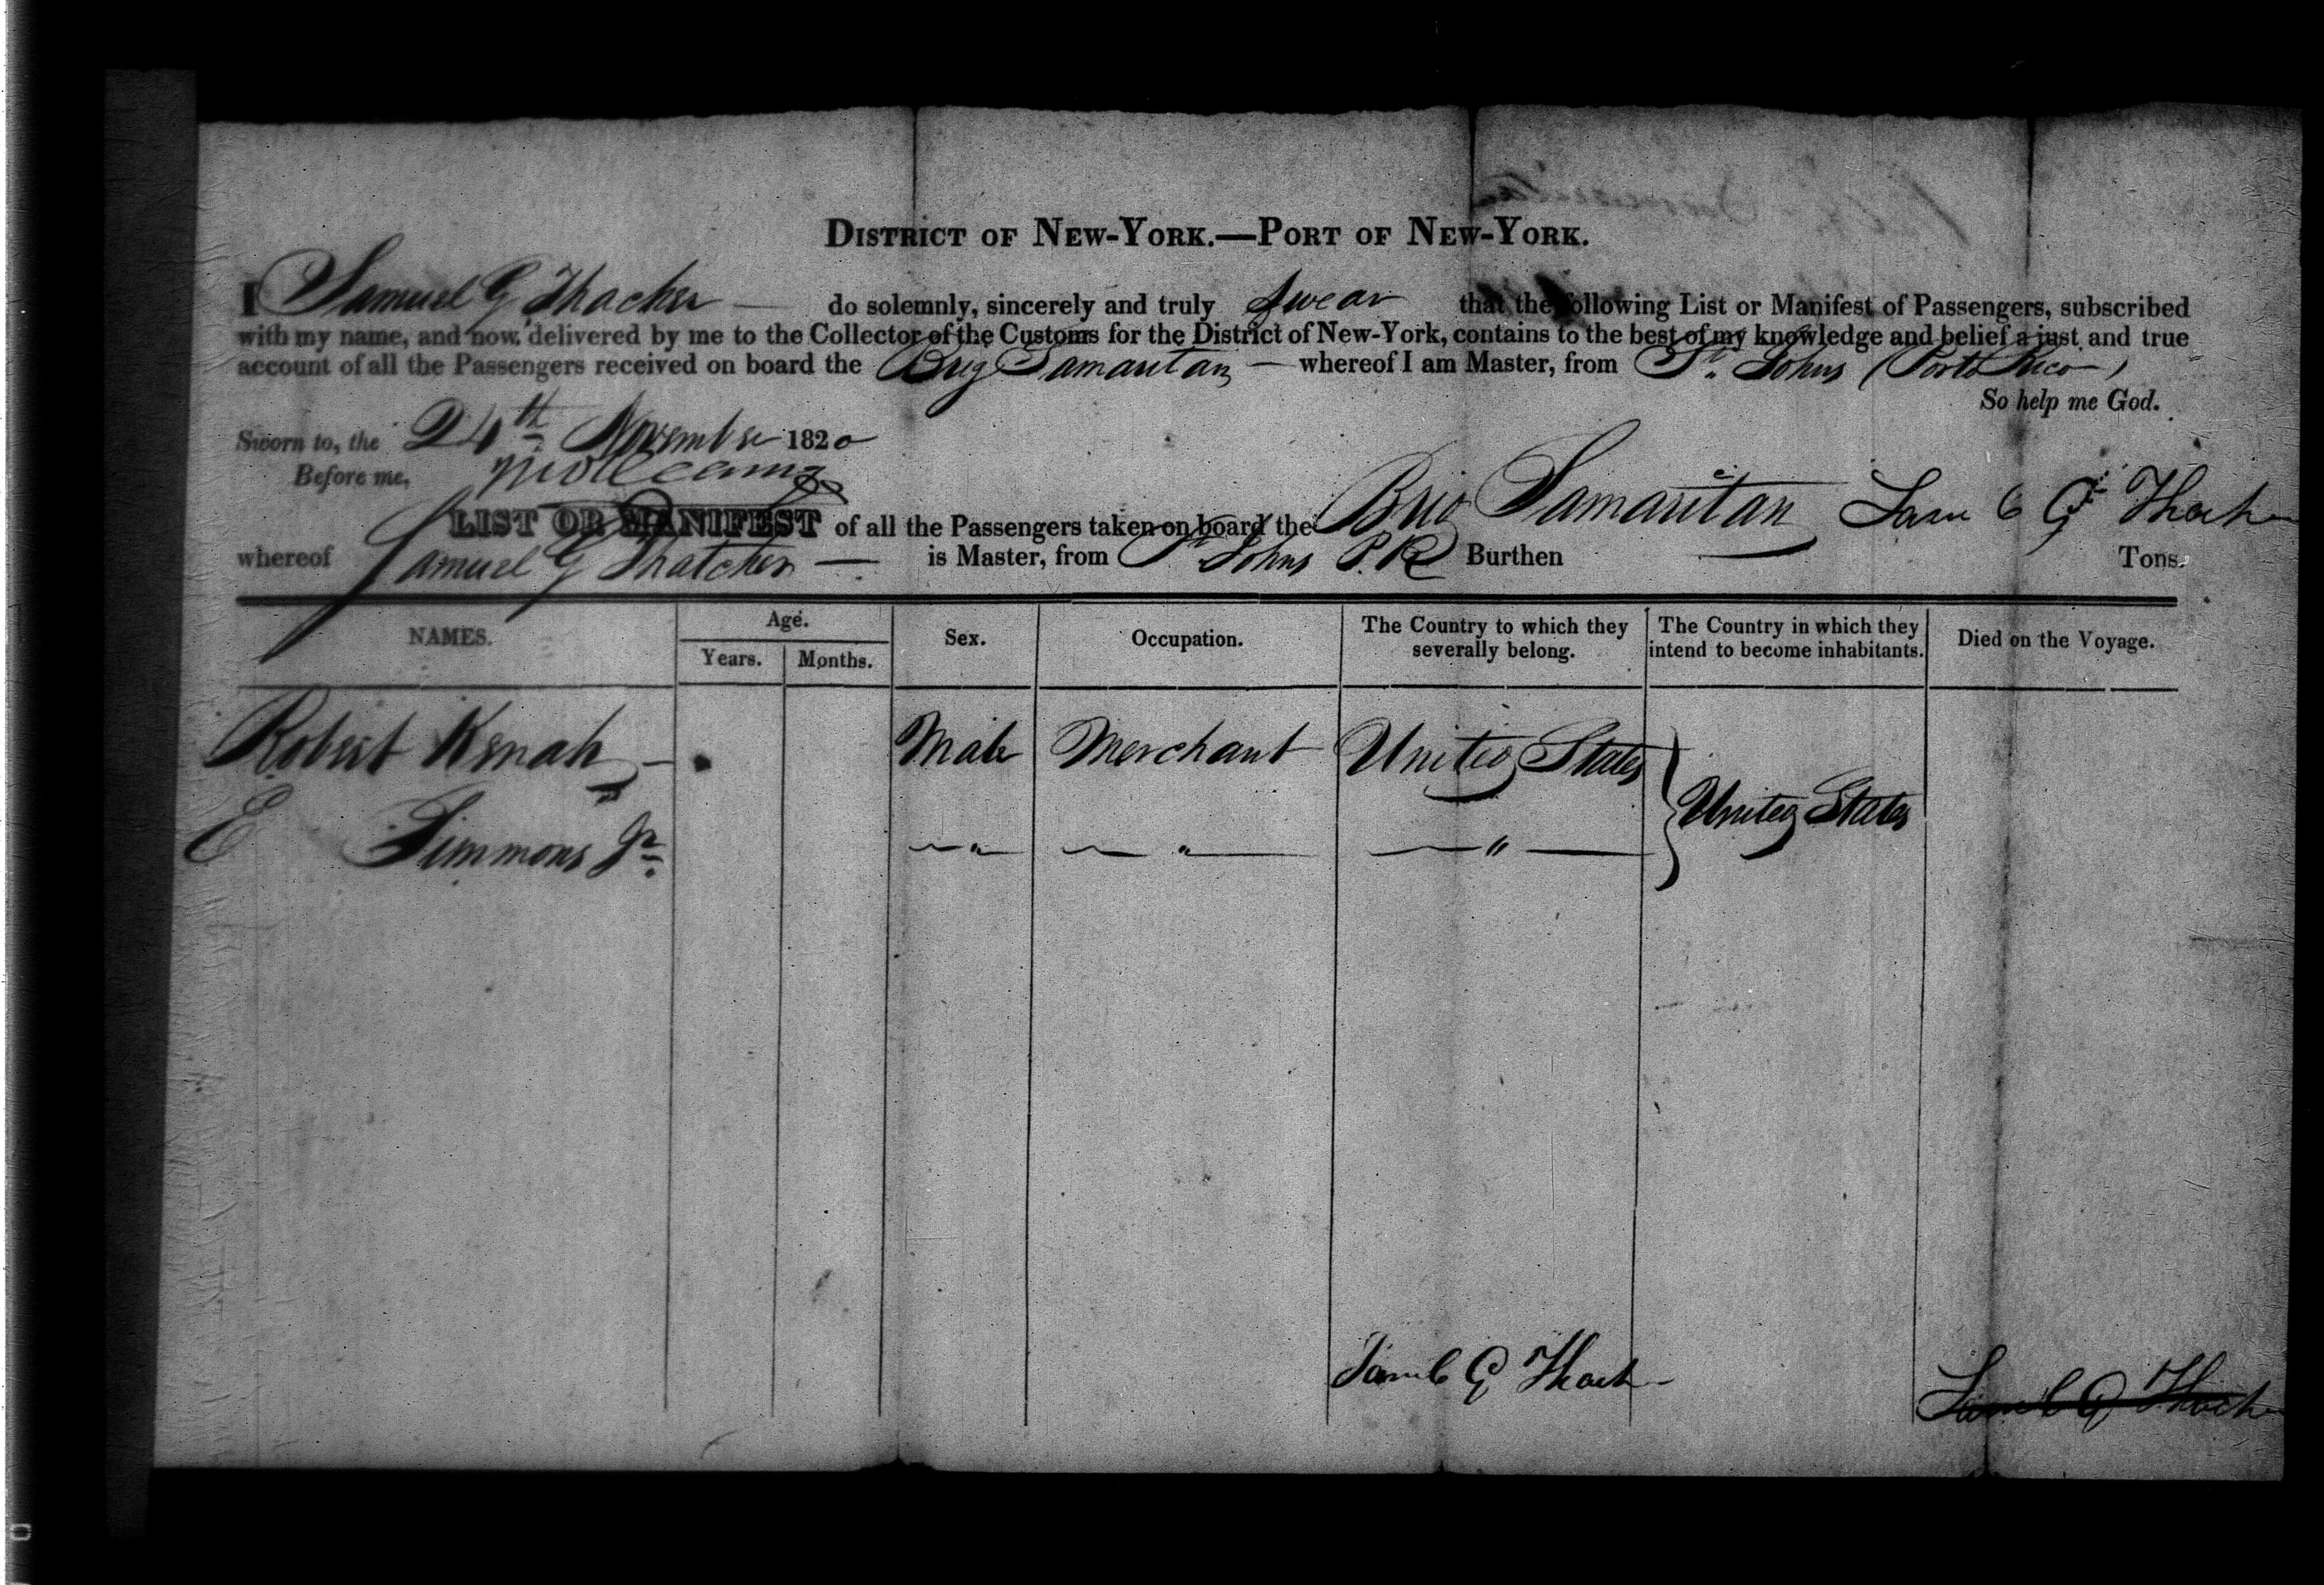 DISTRICT OF NEW-YORK.—PORT OF NEW-YORK.
I Samuel G Thacher — do solemnly, sincerely and truly swear that the following List or Manifest of Passengers, subscribed
with my name, and now delivered by me to the Collector of the Customs for the District of New-York, contains to the best of my knowledge and belief a just and true
account of all the Passengers received on board the Brig Samaritan — whereof I am Master, from St. Johns (Porto Rico)
So help me God.
Sworn to, the 24th November 1820
Before me,
LIST OR MANIFEST of all the Passengers taken on board the Brig Samaritan Saml G Thacher
whereof Samuel G Thatcher — is Master, from St Johns P.R Burthen Tons.
NAMES. Age. Sex. Occupation. The Country to which they severally belong. The Country in which they intend to become inhabitants. Died on the Voyage.
Years. Months.
Robert Kenah — Male Merchant United States
United States
E Simmons Jr. — " — — " — — " —
Saml G Thacher
Saml G Thacher